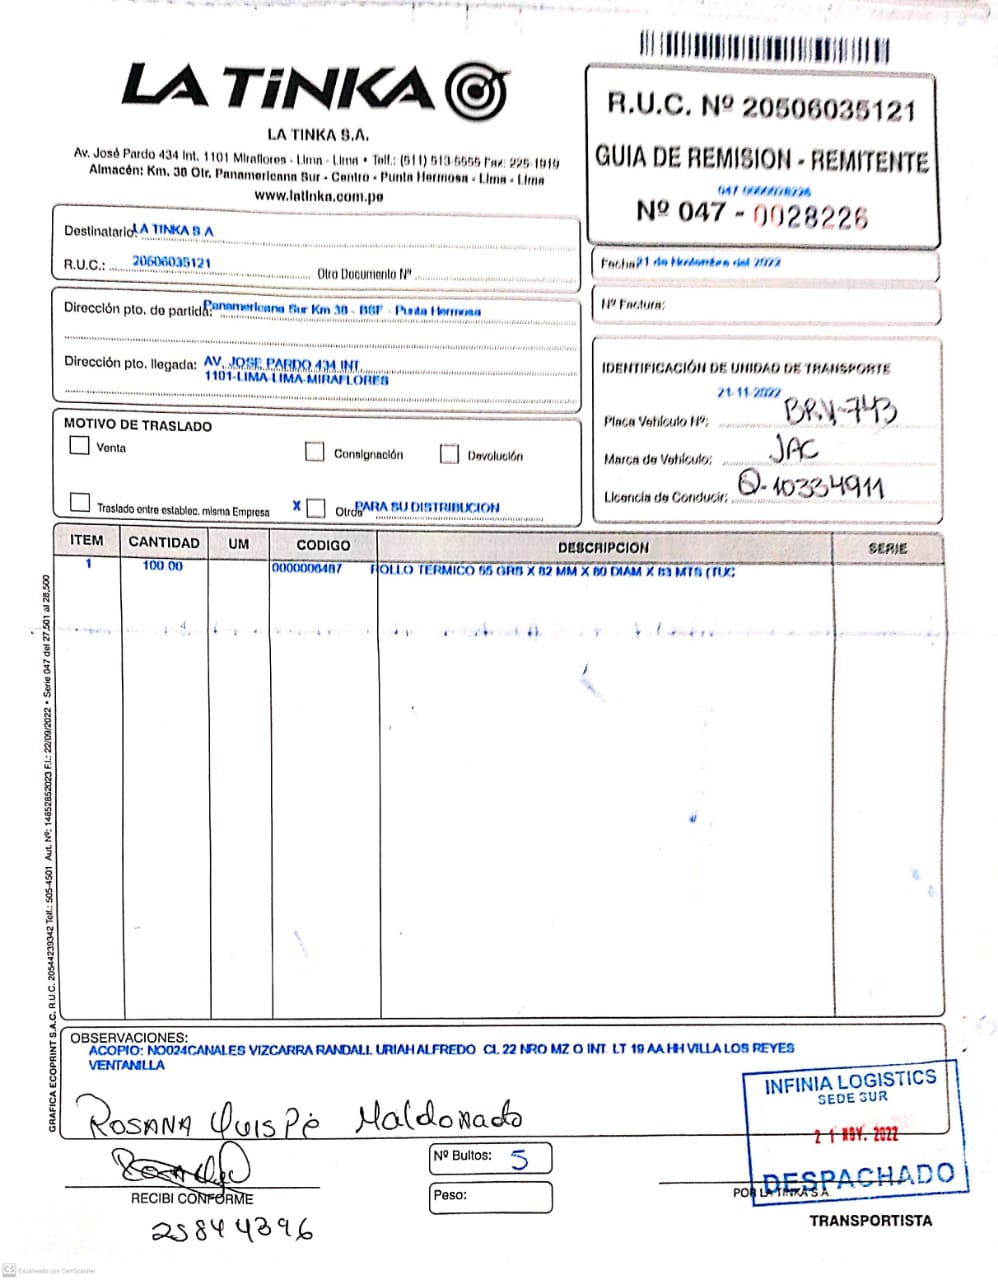 LA TiNKA
LA TINKA S.A.
Av. José Pardo 434 Int. 1101 Miraflores - Lima - Lima • Telf.: (511) 513-5555 Fax: 225-1919
Almacén: Km. 38 Otr. Panamericana Sur - Centro - Punta Hermosa - Lima - Lima
www.latinka.com.pe
R.U.C. Nº 20506035121
GUIA DE REMISION - REMITENTE
047 0000028226
Nº 047 - 0028226
Destinatario: LA TINKA S A
R.U.C.: 20506035121 Otro Documento Nº
Fecha: 21 de Noviembre del 2022
Nº Factura:
Dirección pto. de partida: Panamericana Sur Km 38 - BSF - Punta Hermosa
Dirección pto. llegada: AV. JOSE PARDO 434 INT.
1101-LIMA-LIMA-MIRAFLORES
IDENTIFICACIÓN DE UNIDAD DE TRANSPORTE
21-11-2022
Placa Vehículo Nº: BRV-743
Marca de Vehículo: JAC
Licencia de Conducir: Q-10334911
MOTIVO DE TRASLADO
Venta Consignación Devolución
Traslado entre establec. misma Empresa X Otros PARA SU DISTRIBUCION
ITEM CANTIDAD UM CODIGO DESCRIPCION SERIE
1 100.00 0000006487 ROLLO TERMICO 55 GRS X 82 MM X 80 DIAM X 83 MTS (TUC
GRAFICA ECOPRINT S.A.C. R.U.C. 20544239342 Telf.: 505-4501 Aut. Nº: 14852852023 F.I.: 22/09/2022 • Serie 047 del 27,501 al 28,500
OBSERVACIONES:
ACOPIO: NO024CANALES VIZCARRA RANDALL URIAH ALFREDO CL 22 NRO MZ O INT. LT 19 AA HH VILLA LOS REYES
VENTANILLA
ROSANA QUISPE Maldonado
RECIBI CONFORME
25844396
Nº Bultos: 5
Peso:
INFINIA LOGISTICS
SEDE SUR
21 NOV. 2022
DESPACHADO
POR LA TINKA S.A.
TRANSPORTISTA
CS Escaneado con CamScanner